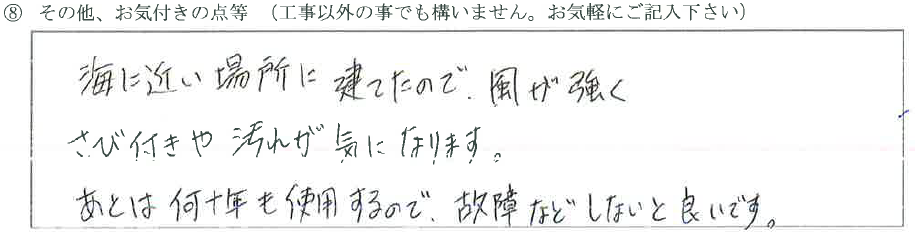 ⑧ その他、お気付きの点等 （工事以外の事でも構いません。お気軽にご記入下さい）
海に近い場所に建てたので、風が強く
さび付きや汚れが気になります。
あとは何十年も使用するので、故障などしないと良いです。